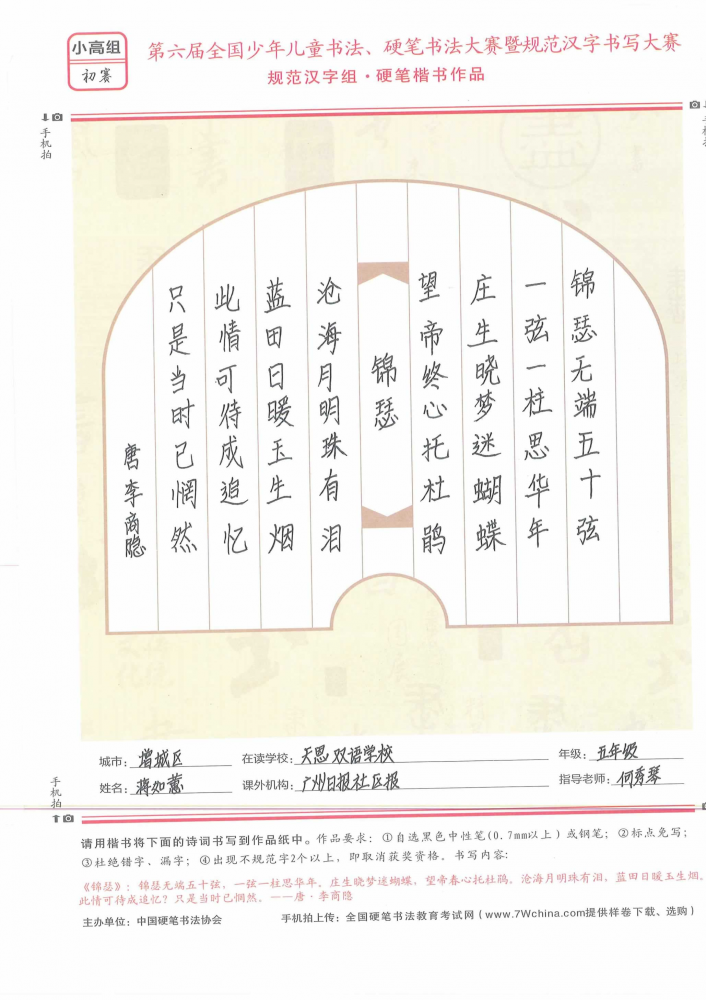 小高组
初赛
第六届全国少年儿童书法、硬笔书法大赛暨规范汉字书写大赛
规范汉字组·硬笔楷书作品
手机拍
锦瑟无端五十弦
一弦一柱思华年
庄生晓梦迷蝴蝶
望帝终心托杜鹃
锦瑟
沧海月明珠有泪
蓝田日暖玉生烟
此情可待成追忆
只是当时已惘然
唐李商隐
城市：增城区 在读学校：天思双语学校 年级：五年级
姓名：蒋如蕙 课外机构：广州日报社区报 指导老师：何秀琴
手机拍
请用楷书将下面的诗词书写到作品纸中。作品要求：①自选黑色中性笔(0.7mm以上)或钢笔；②标点免写；
③杜绝错字、漏字；④出现不规范字2个以上，即取消获奖资格。书写内容：
《锦瑟》：锦瑟无端五十弦，一弦一柱思华年。庄生晓梦迷蝴蝶，望帝春心托杜鹃。沧海月明珠有泪，蓝田日暖玉生烟。
此情可待成追忆？只是当时已惘然。——唐·李商隐
主办单位：中国硬笔书法协会 手机拍上传：全国硬笔书法教育考试网（www.7Wchina.com提供样卷下载、选购）